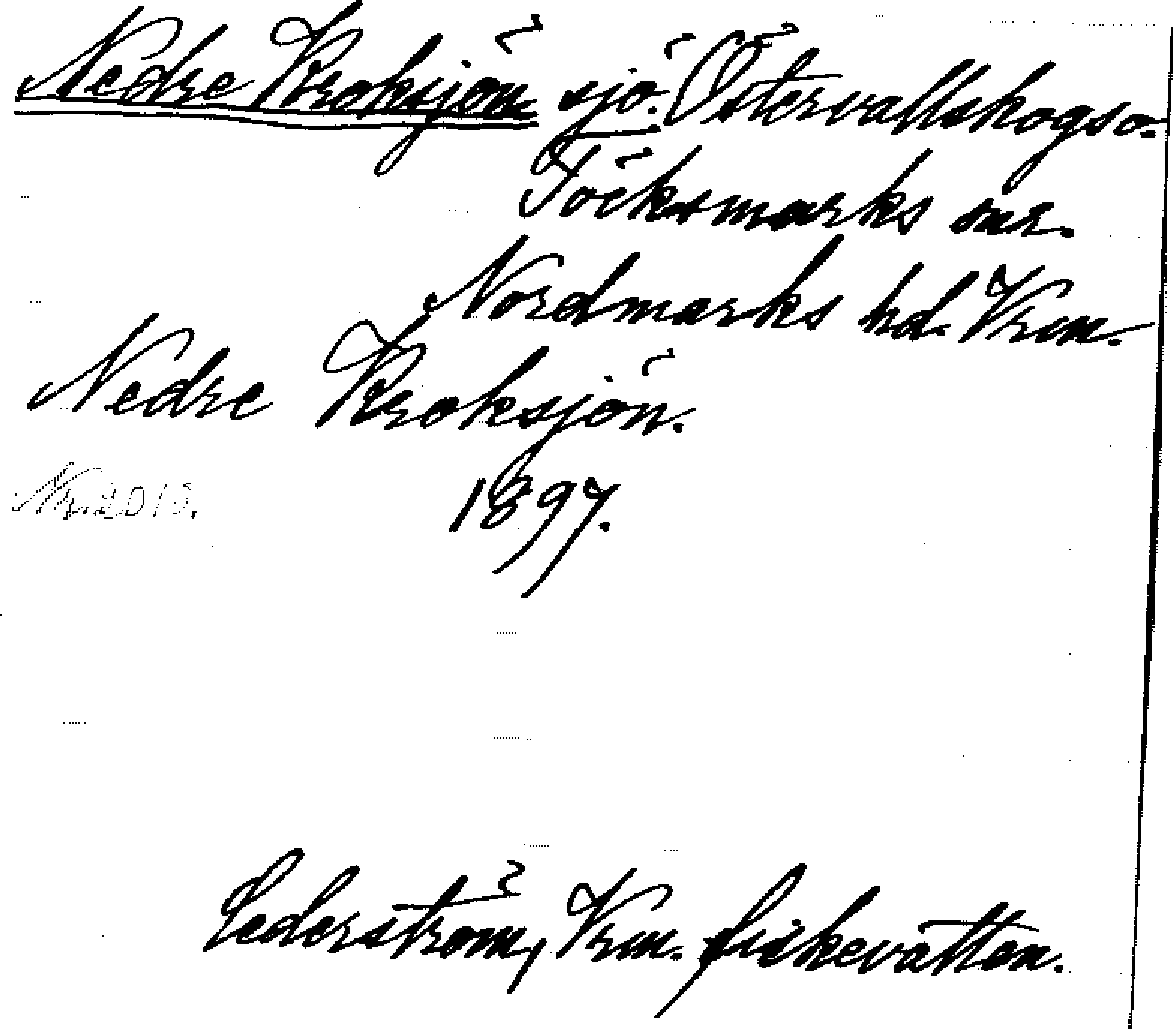 Nedre Kroksjön sjö. Östervallskogs o.
Töcksmarks snr.
Nordmarks hd. Vrm.
Nedre Kroksjön.
Nr. 2013. 1897.
Cederström, Vrm. fiskevatten.